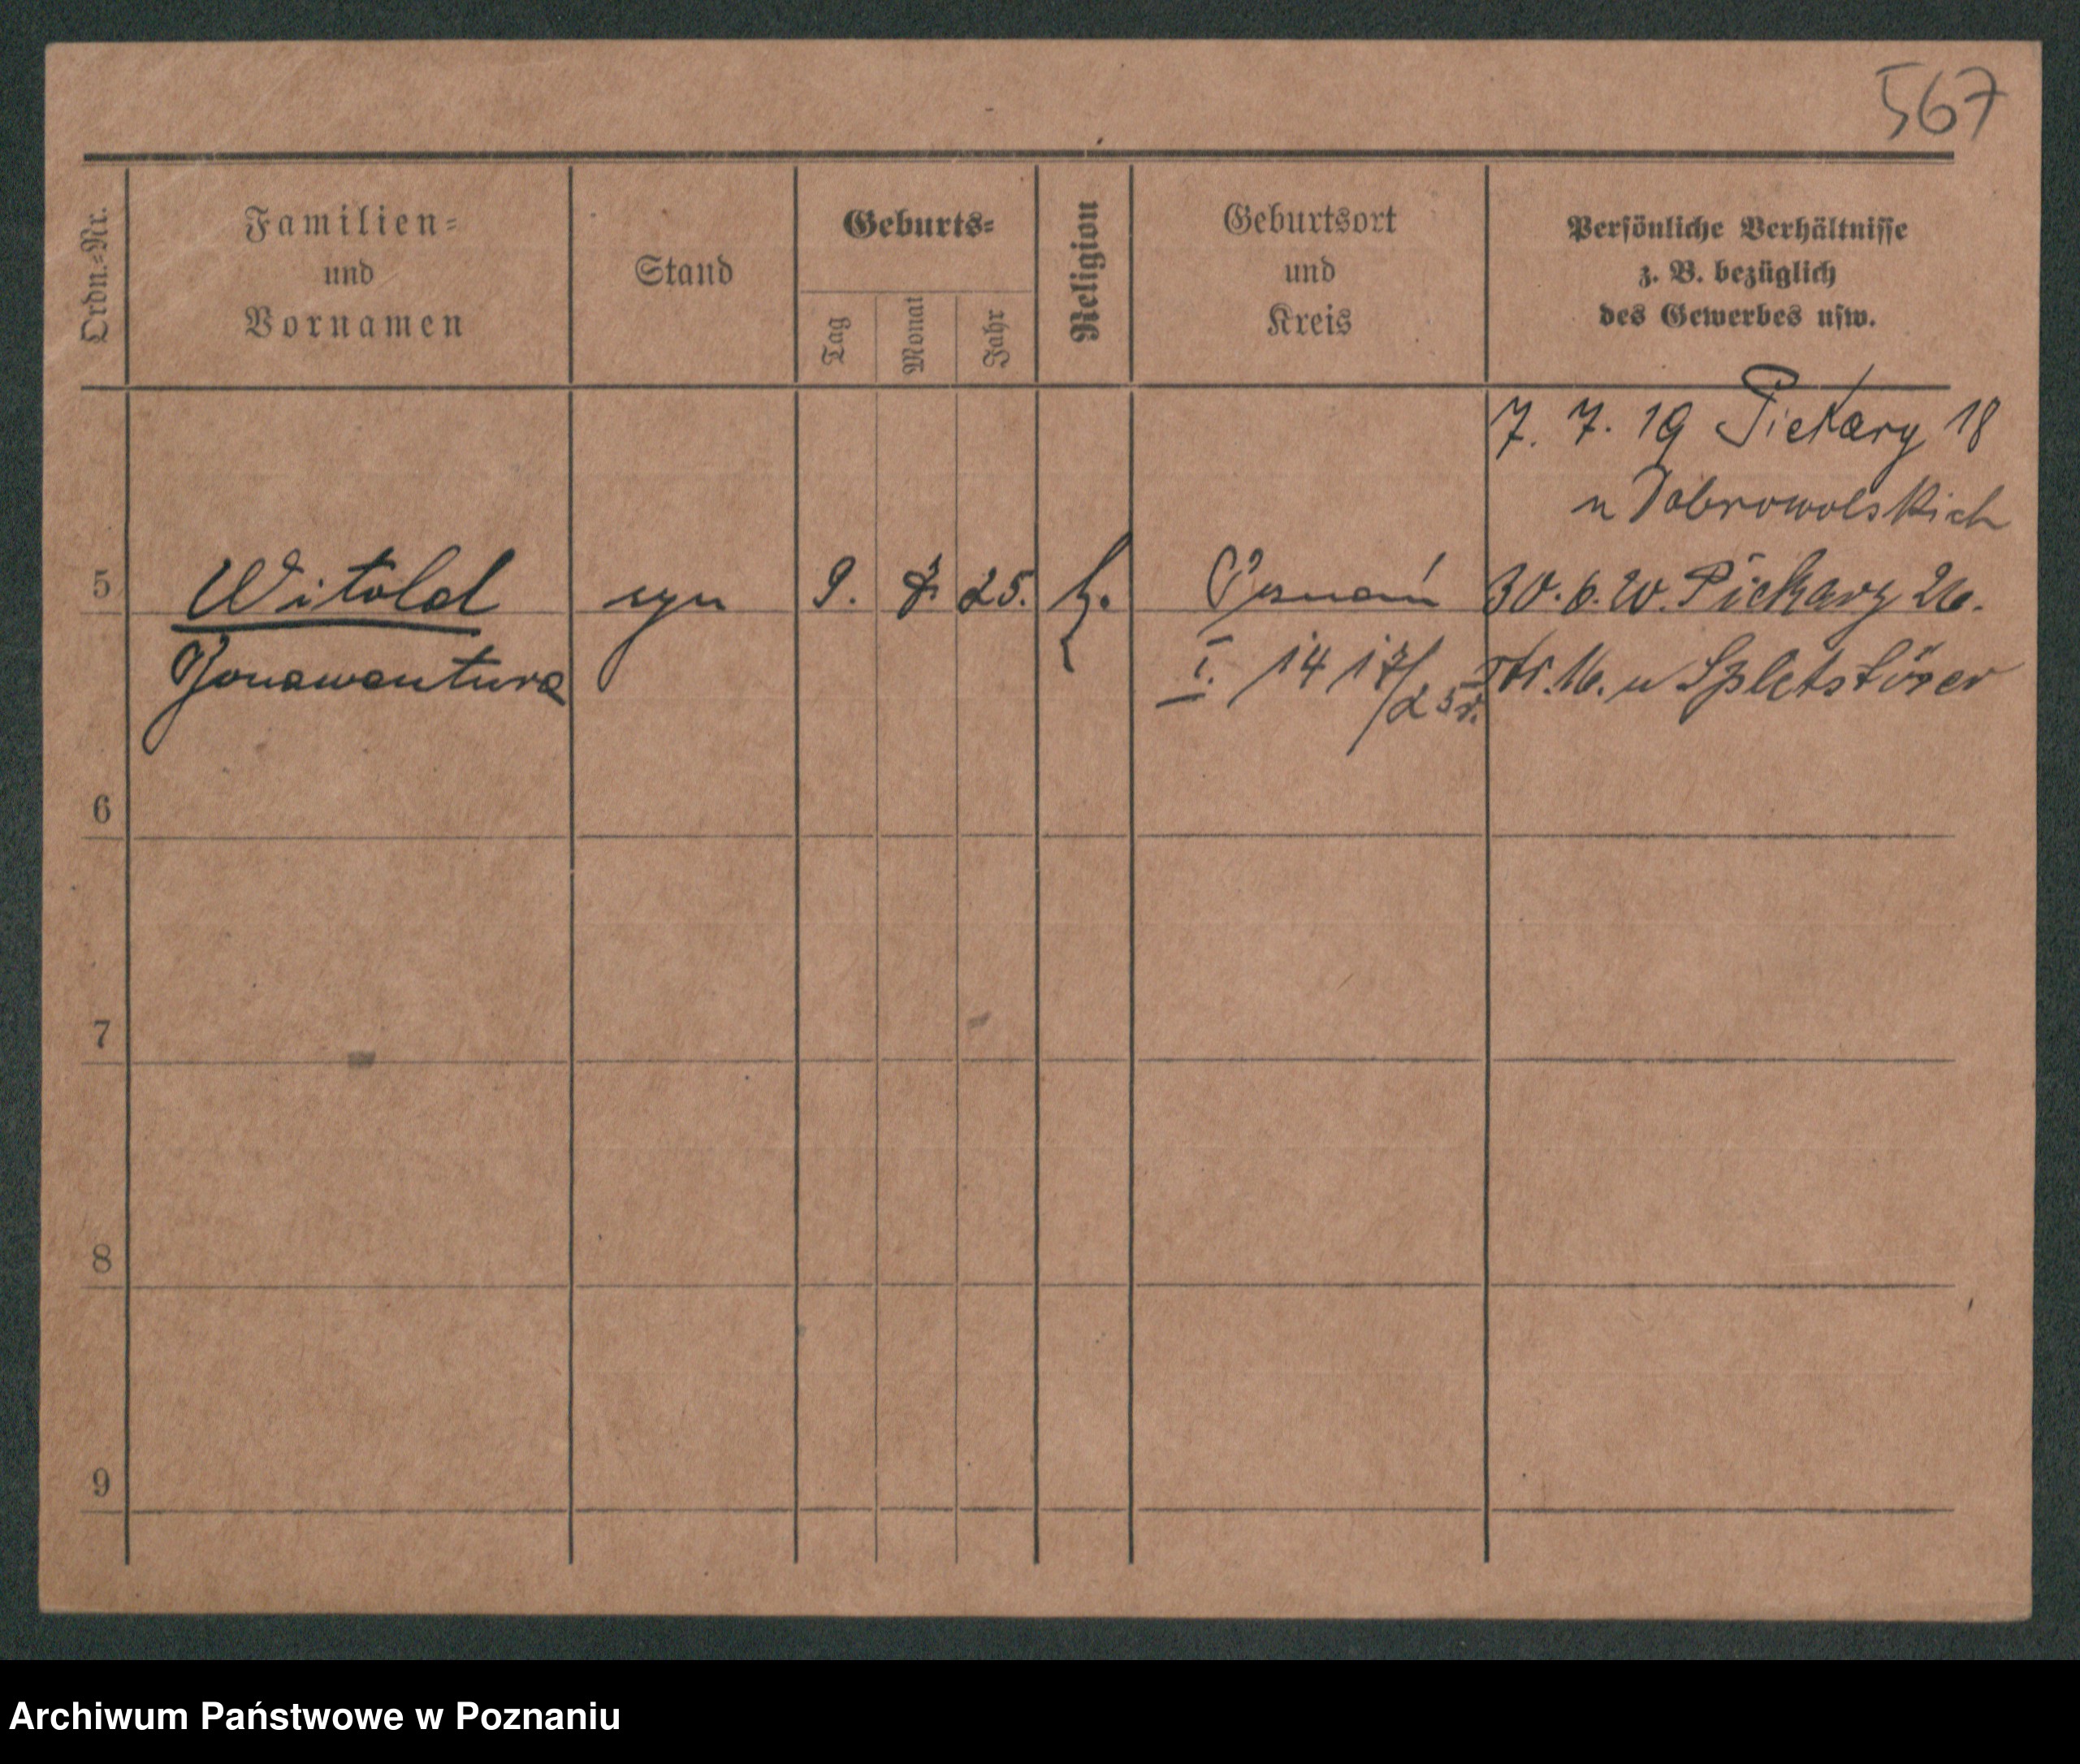 567
Ordn.=Nr.
Familien=
und
Vornamen
Stand
Geburts=
Tag
Monat
Jahr
Religion
Geburtsort
und
Kreis
Persönliche Verhältnisse
z. B. bezüglich
des Gewerbes usw.
7. 7. 19 Piekary 18
u Dobrowolskich
5 Witold syn 9. 7. 25. k. Poznań 30. 6. 20. Piekary 26.
Bonawentura I. 1417/25r. u Spletstöser
6
7
8
9
Archiwum Państwowe w Poznaniu